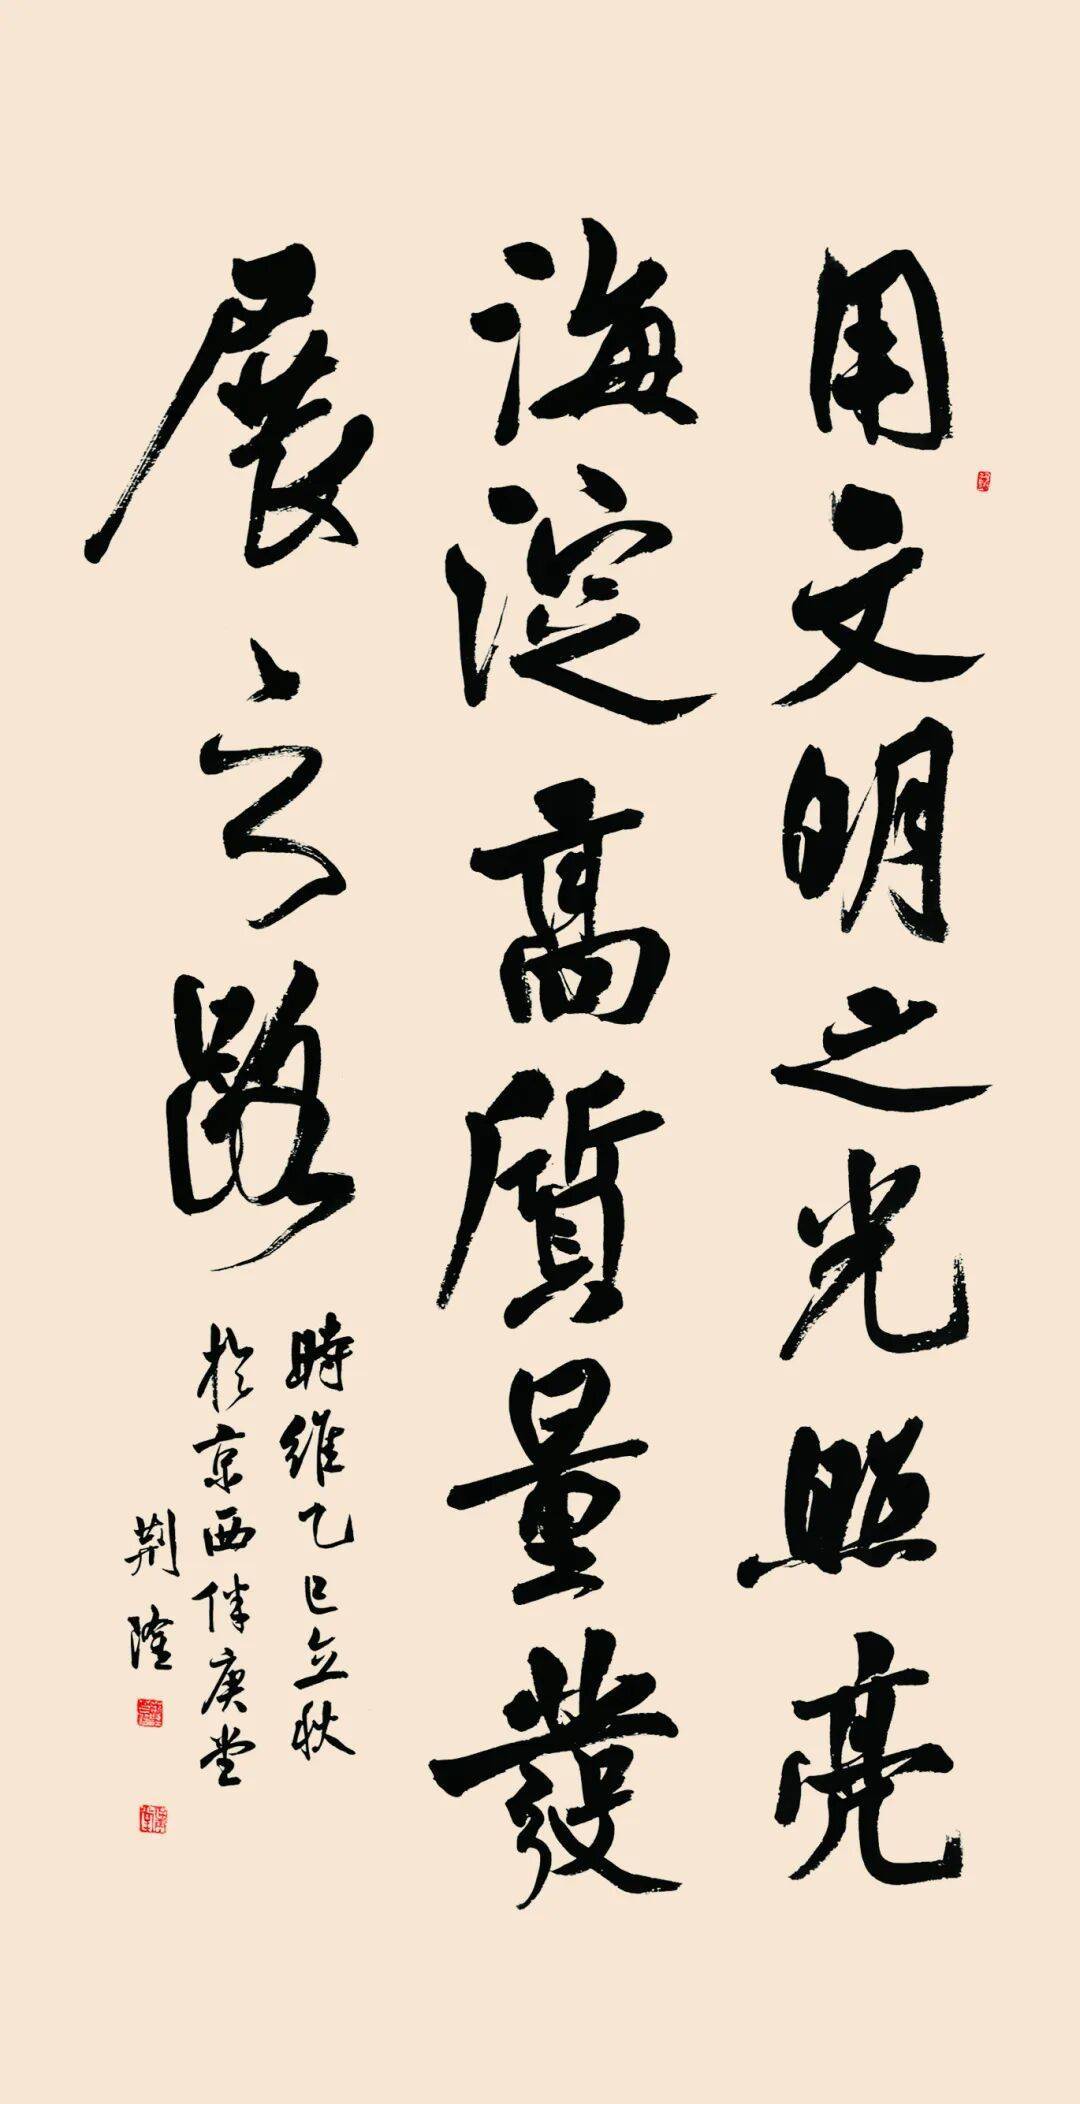 用文明之光照亮
海淀高質量發
展之路
時維乙巳立秋
於京西伴庚堂
荆隆